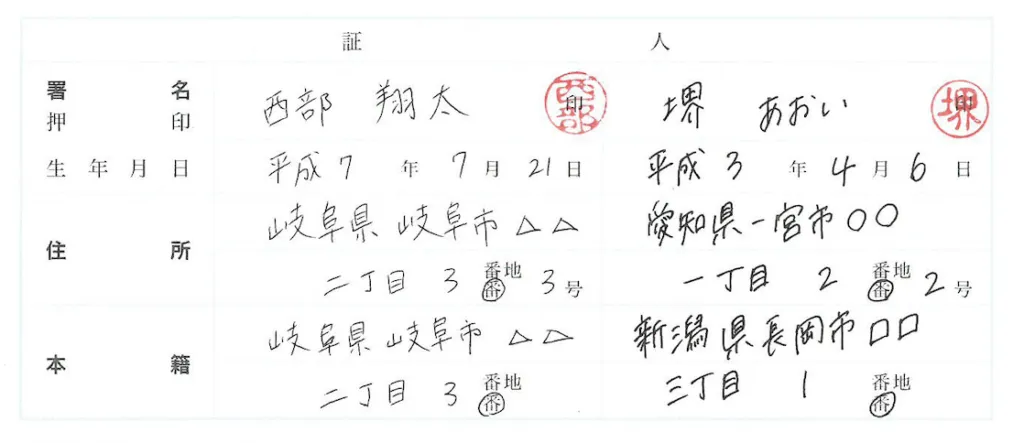 証 人
署 名
押 印
西部 翔太 印 西部
堺 あおい 印 堺
生 年 月 日
平成 7 年 7 月 21 日
平成 3 年 4 月 6 日
住 所
岐阜県 岐阜市 △△
二丁目 3 番地 番 3 号
愛知県一宮市 〇〇
一丁目 2 番地 番 2 号
本 籍
岐阜県 岐阜市 △△
二丁目 3 番地 番
新潟県長岡市 □□
三丁目 1 番地 番